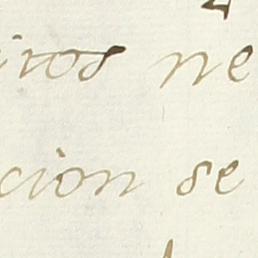 iros ne
cion se